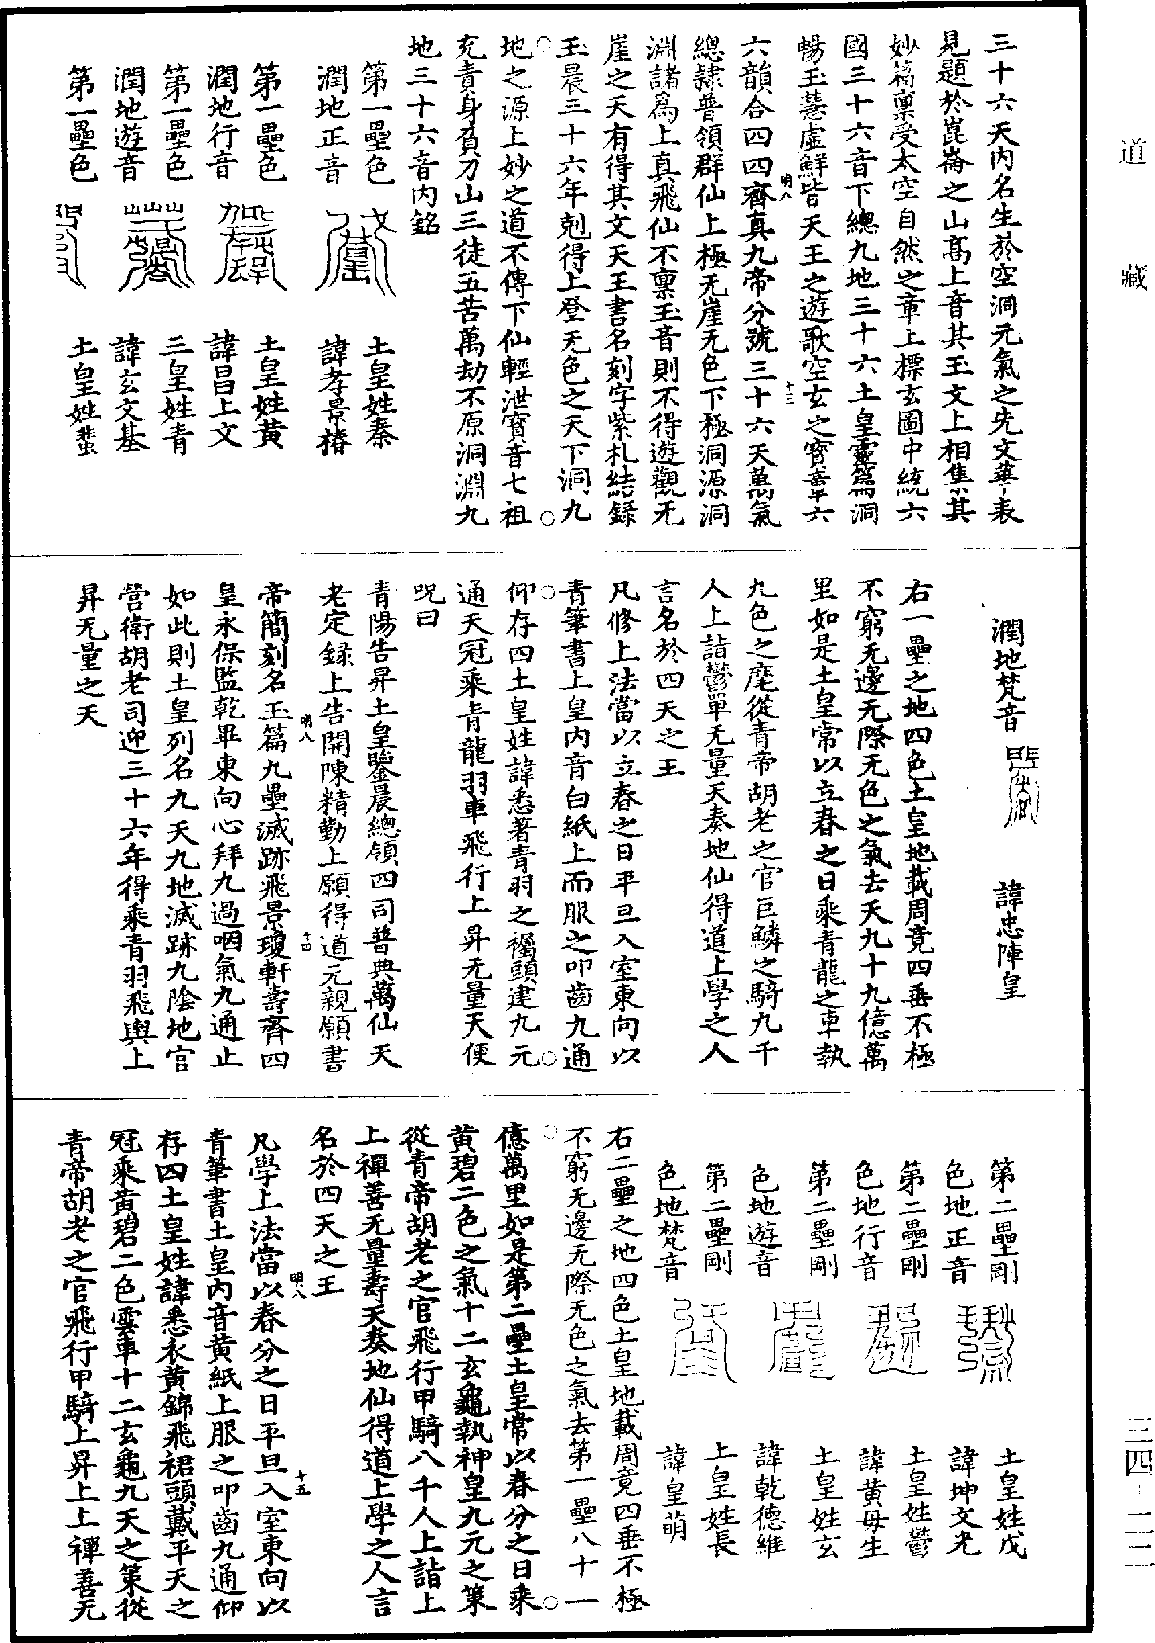 道藏
三十六天內名生於空洞元氣之先文華表
見題於崑崙之山高上音其玉文上相集其
妙篇稟受太空自然之章上標玄圖中統六
國三十六音下總九地三十六土皇靈篇洞
暢玉慧虛鮮皆天王之遊歌空玄之寶章六
六韻合四四齊真九帝分號三十六天萬氣
明八
十三
總隸普領群仙上極无崖无色下極洞源洞
淵諸為上真飛仙不稟玉音則不得遊觀无
崖之天有得其文天王書名刻字紫札結錄
玉晨三十六年剋得上登无色之天下洞九
地之源上妙之道不傳下仙輕泄寶音七祖
充責身負刀山三徒五苦萬劫不原洞淵九
地三十六音內銘
第一壘色
土皇姓秦
潤地正音
諱孝景椿
第一壘色
土皇姓黃
潤地行音
諱昌上文
第一壘色
三皇姓青
潤地遊音
諱玄文基
第一壘色
土皇姓蜚
潤地梵音
諱忠陣皇
右一壘之地四色土皇地載周竟四垂不極
不窮无邊无際无色之氣去天九十九億萬
里如是土皇常以立春之日乘青龍之車執
九色之麾從青帝胡老之官巨鱗之騎九千
人上詣鬱單无量天奏地仙得道上學之人
言名於四天之王
凡修上法當以立春之日平旦入室東向以
青筆書上皇內音白紙上而服之叩齒九通
仰存四土皇姓諱悉著青羽之襡頭建九元
通天冠乘青龍羽車飛行上昇无量天便
呪曰
青陽告昇土皇鑒晨總領四司普典萬仙天
老定錄上告開陳精勤上願得道元親願書
明八
十四
帝簡刻名玉篇九壘滅跡飛景瓊軒壽齊四
皇永保監乾畢東向心拜九過咽氣九通止
如此則土皇列名九天九地滅跡九陰地官
營衛胡老司迎三十六年得乘青羽飛輿上
昇无量之天
第二壘剛
土皇姓戊
色地正音
諱坤文光
第二壘剛
土皇姓鬱
色地行音
諱黃毋生
第二壘剛
土皇姓玄
色地遊音
諱乾德維
第二壘剛
上皇姓長
色地梵音
諱皇萌
右二壘之地四色土皇地載周竟四垂不極
不窮无邊无際无色之氣去第一壘八十一
億萬里如是第二壘土皇常以春分之日乘
黃碧二色之氣十二玄龜執神皇九元之策
從青帝胡老之官飛行甲騎八千人上詣上
上禪善无量壽天奏地仙得道上學之人言
名於四天之王
明八
十五
凡學上法當以春分之日平旦入室東向以
青筆書土皇內音黃紙上服之叩齒九通仰
存四土皇姓諱悉衣黃錦飛裙頭戴平天之
冠乘黃碧二色雲車十二玄龜九天之策從
青帝胡老之官飛行甲騎上昇上上禪善无
三四-二二